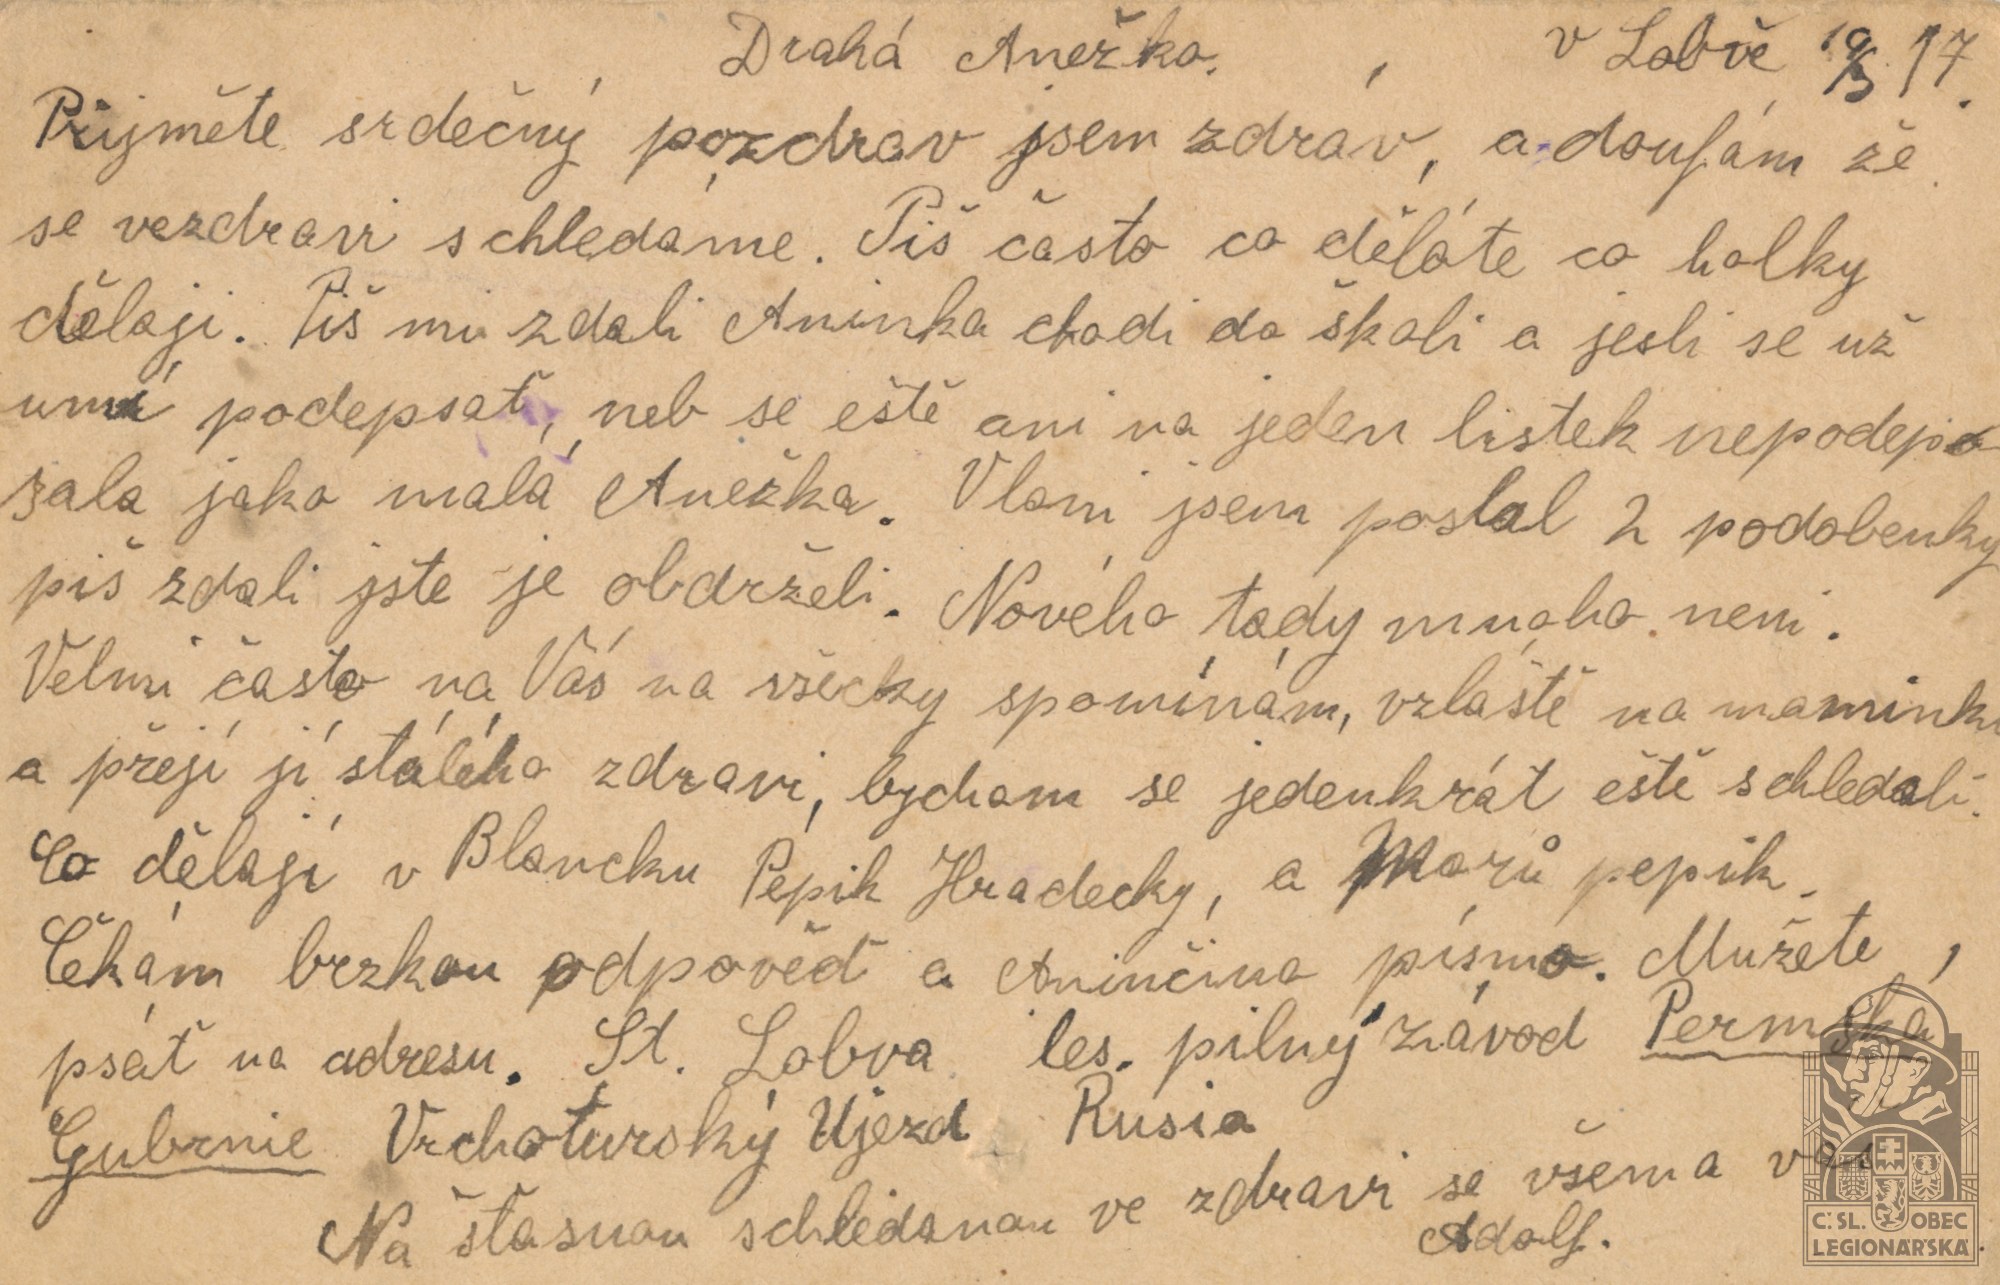 Drahá Anežko. v Lobvě 19/5 17.
Přijměte srdečný pozdrav jsem zdráv, a doufám že
se vezdravi schledáme. Piš často co děláte co holky
dělaji. Piš mi zdali Aninka chodi do školi a jesli se už
umí podepsat, neb se eště ani na jeden listek nepodepsa
zala jako malá Anežka. Vloni jsem poslal 2 podobenky
piš zdali jste je obdrželi. Nového tady mnoho neni.
Velmi často na Vás na všecky spomínám, vzláště na maminku
a přejí jí stálého zdravi, bychom se jedenkrát eště schledali.
Co dělají v Blancku Pepik Hradecky, a Morů pepik.
Čekám brzkou odpověď a Aninčino písmo. Mužete
psát na adresu. St. Lobva les. pilný závod Permska
Gubrnie Vrchoturský Ujezd Rusia
Na štasnou schledanou ve zdravi se všema vás
Adolf.
Č. SL. OBEC
LEGIONÁŘSKÁ